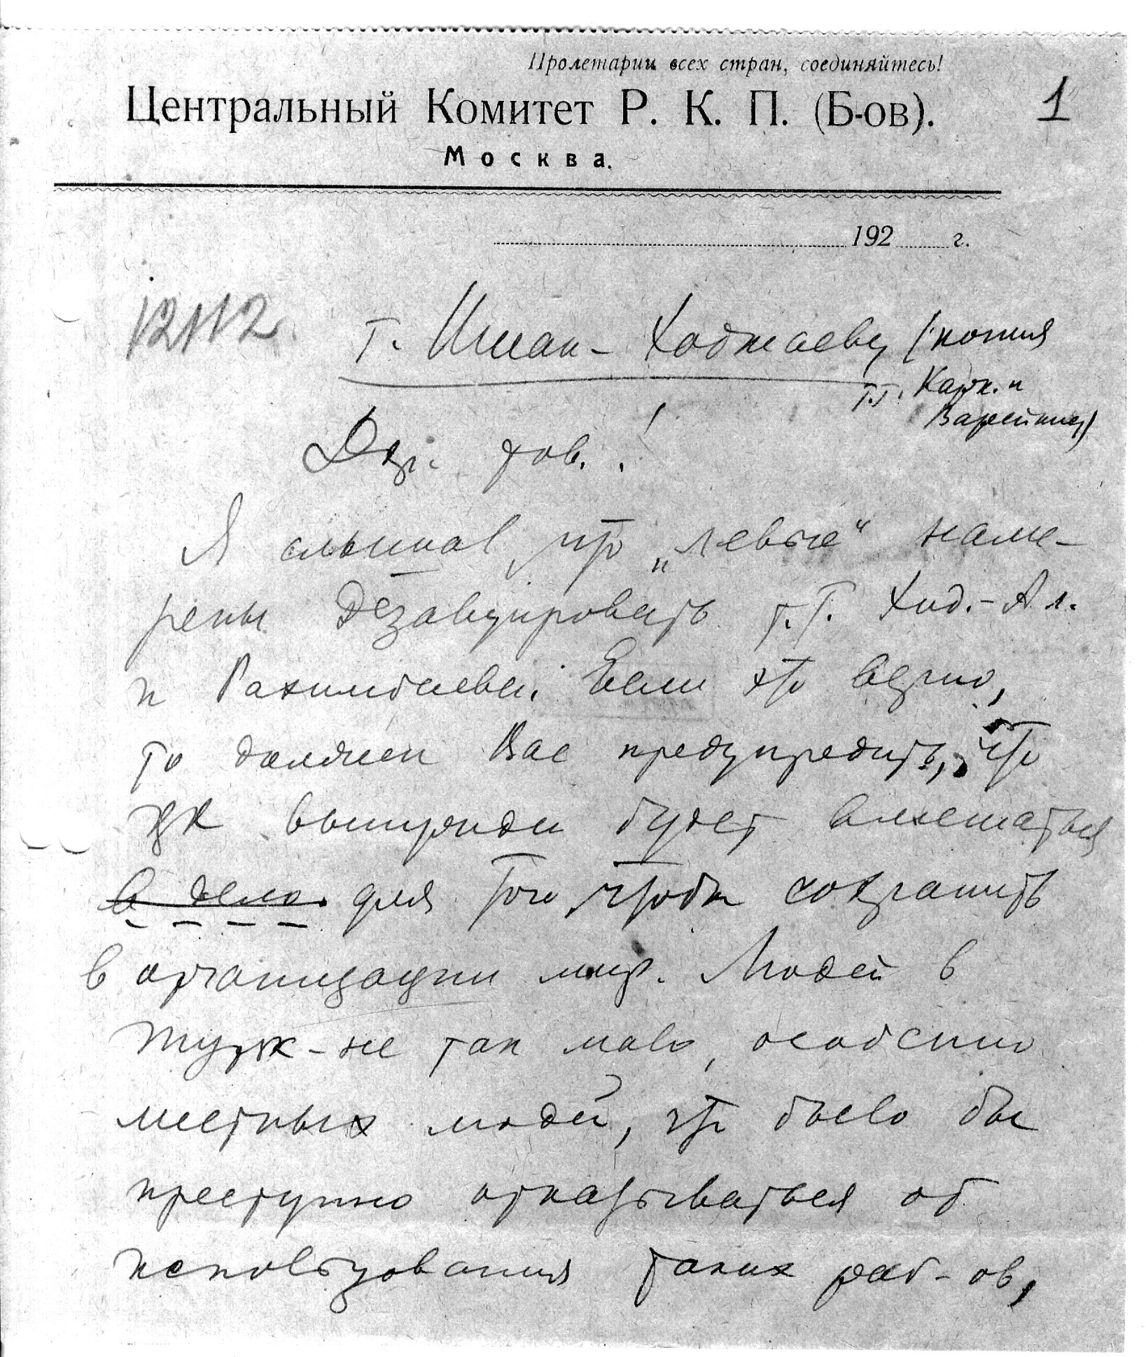 Пролетарии всех стран, соединяйтесь!
Центральный Комитет Р. К. П. (Б-ов).
1
Москва.
192 г.
12112
т. Ишан-Ходжаеву (копия
т.т. Карк. и
Варейкису)
Дор. тов.!
Я слышал что „левые“ наме-
рены дезавуировать т.т. Ход.-Ал.
и Рахимбаева. Если это верно,
то должен Вас предупредить, что
ЦК вынужден будет вмешаться
в дело для того, чтобы сохранить
в организации мир. Людей в
Турк - не так мало, особенно
местных людей, что было бы
преступно отказываться от
использования таких раб-ов,